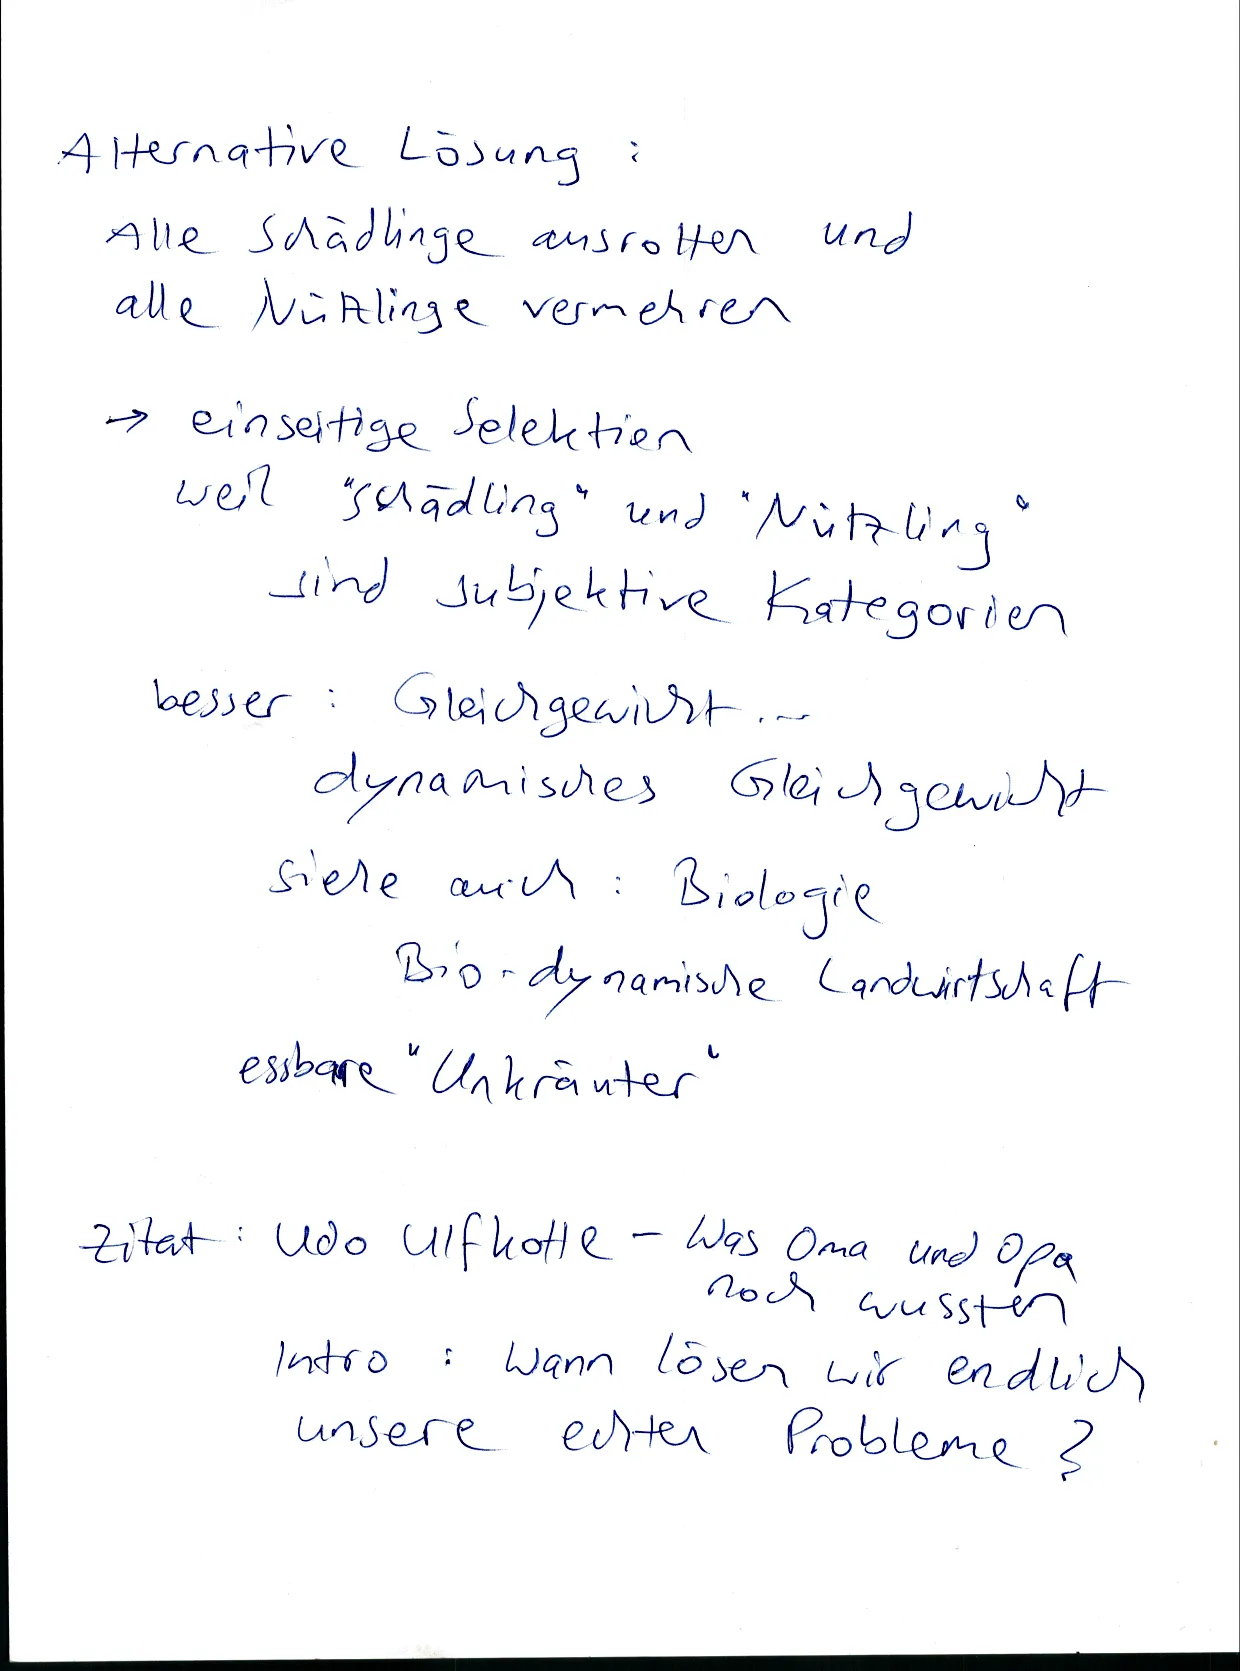 Alternative Lösung :
Alle Schädlinge ausrotten und
alle Nützlinge vermehren
→ einseitige Selektion
weil "Schädling" und "Nützling"
sind subjektive Kategorien
besser : Gleichgewicht...
dynamisches Gleichgewicht
siehe auch : Biologie
Bio-dynamische Landwirtschaft
essbare "Unkräuter"
Zitat : Udo Ulfkotte – Was Oma und Opa
noch wussten
Intro : Wann lösen wir endlich
unsere echten Probleme ?